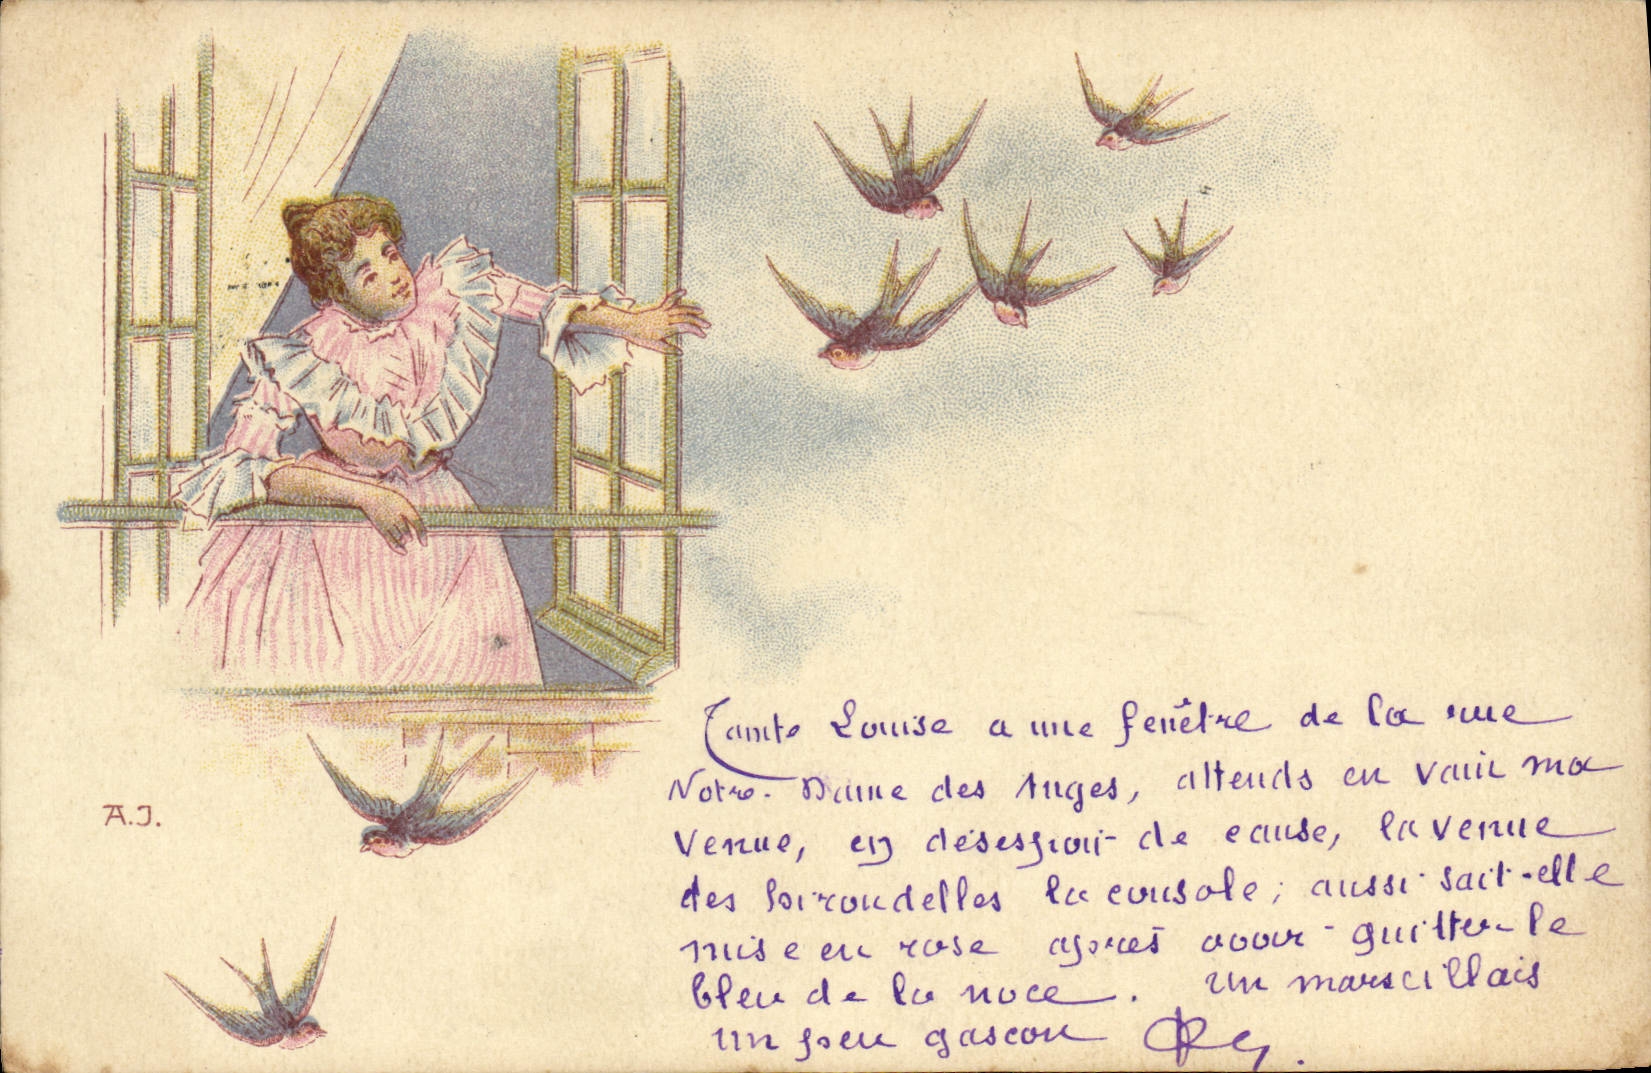 Tante Louise a une fenêtre de la rue
Notre-Dame des Anges, attends en vain ma
venue, en désespoir de cause, la venue
des hirondelles la console; aussi sait-elle
mise en rose après avoir quitter le
bleu de la noce. Un marseillais
un peu gascon
A.J.